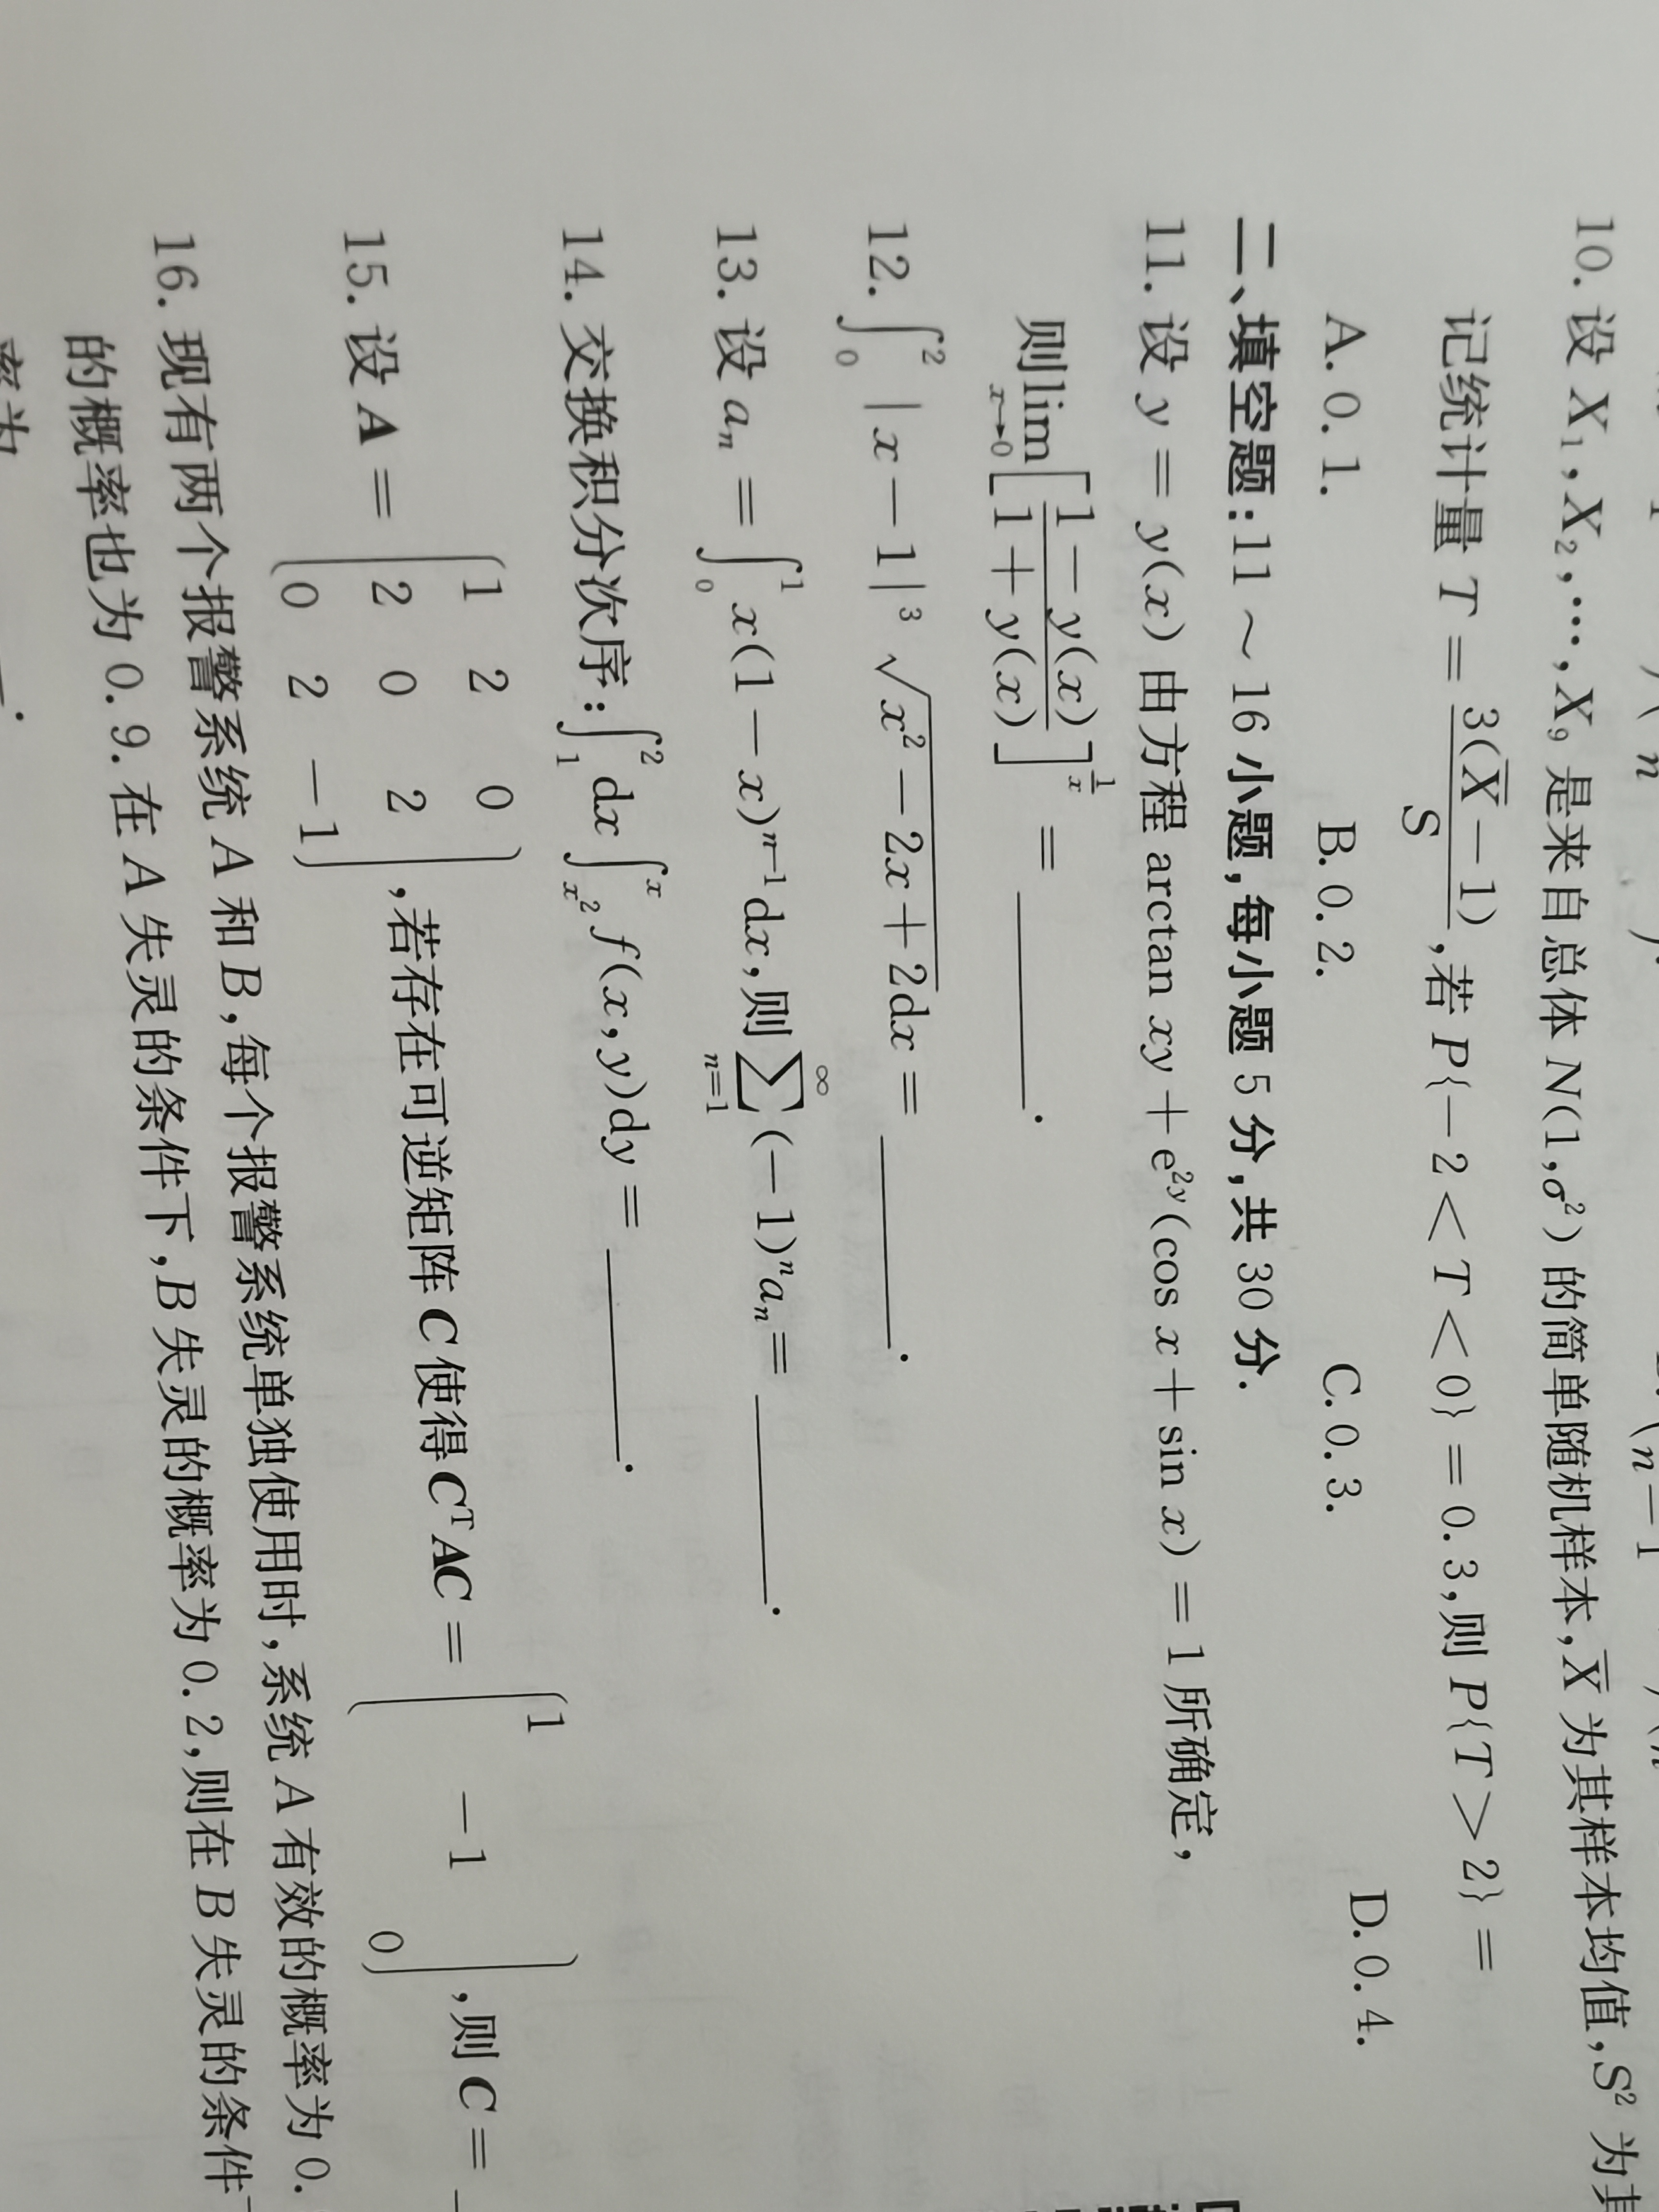 10. 设 X₁,X₂,…,X₉ 是来自总体 N(1,σ²) 的简单随机样本,X̄ 为其样本均值,S² 为其
记统计量 T = 3(X̄ − 1)/S ,若 P{−2 < T < 0} = 0.3,则 P{T > 2} =
A. 0.1. B. 0.2. C. 0.3. D. 0.4.
二、填空题:11 ~ 16 小题,每小题 5 分,共 30 分.
11. 设 y = y(x) 由方程 arctan xy + e^{2y}(cos x + sin x) = 1 所确定,
则 lim_{x→0} [(1 − y(x))/(1 + y(x))]^{1/x} = ______.
12. ∫₀² |x − 1|³ √(x² − 2x + 2) dx = ______.
13. 设 aₙ = ∫₀¹ x(1 − x)^{n−1} dx,则 ∑_{n=1}^{∞} (−1)ⁿ aₙ = ______.
14. 交换积分次序:∫₁² dx ∫_{x²}^{x} f(x,y)dy = ______.
15. 设 A = (1 2 0
2 0 2
0 2 −1) ,若存在可逆矩阵 C 使得 CᵀAC = (1
−1
0) ,则 C =
16. 现有两个报警系统 A 和 B,每个报警系统单独使用时,系统 A 有效的概率为 0.
的概率也为 0.9. 在 A 失灵的条件下,B 失灵的概率为 0.2,则在 B 失灵的条件
率为 ______.